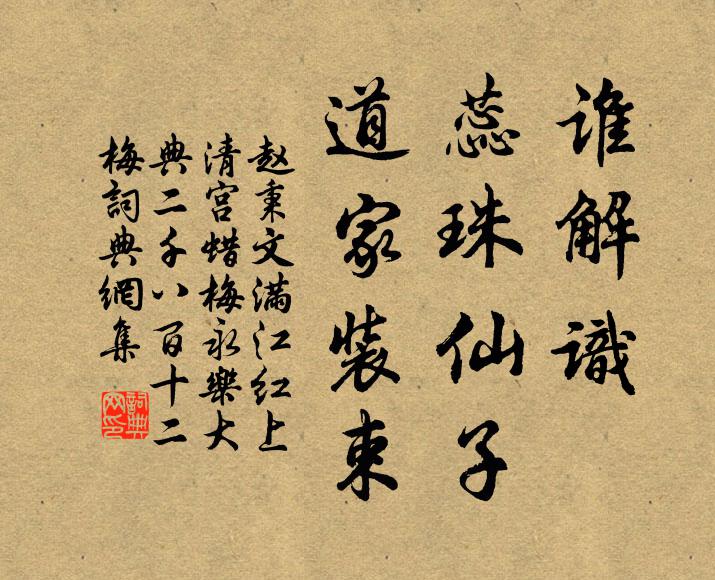 谁解識
蕊珠仙子
道家裝束
赵秉文满江红上
清宫蜡梅永樂大
典二千八百十二
梅詞典網集
詞典
网印